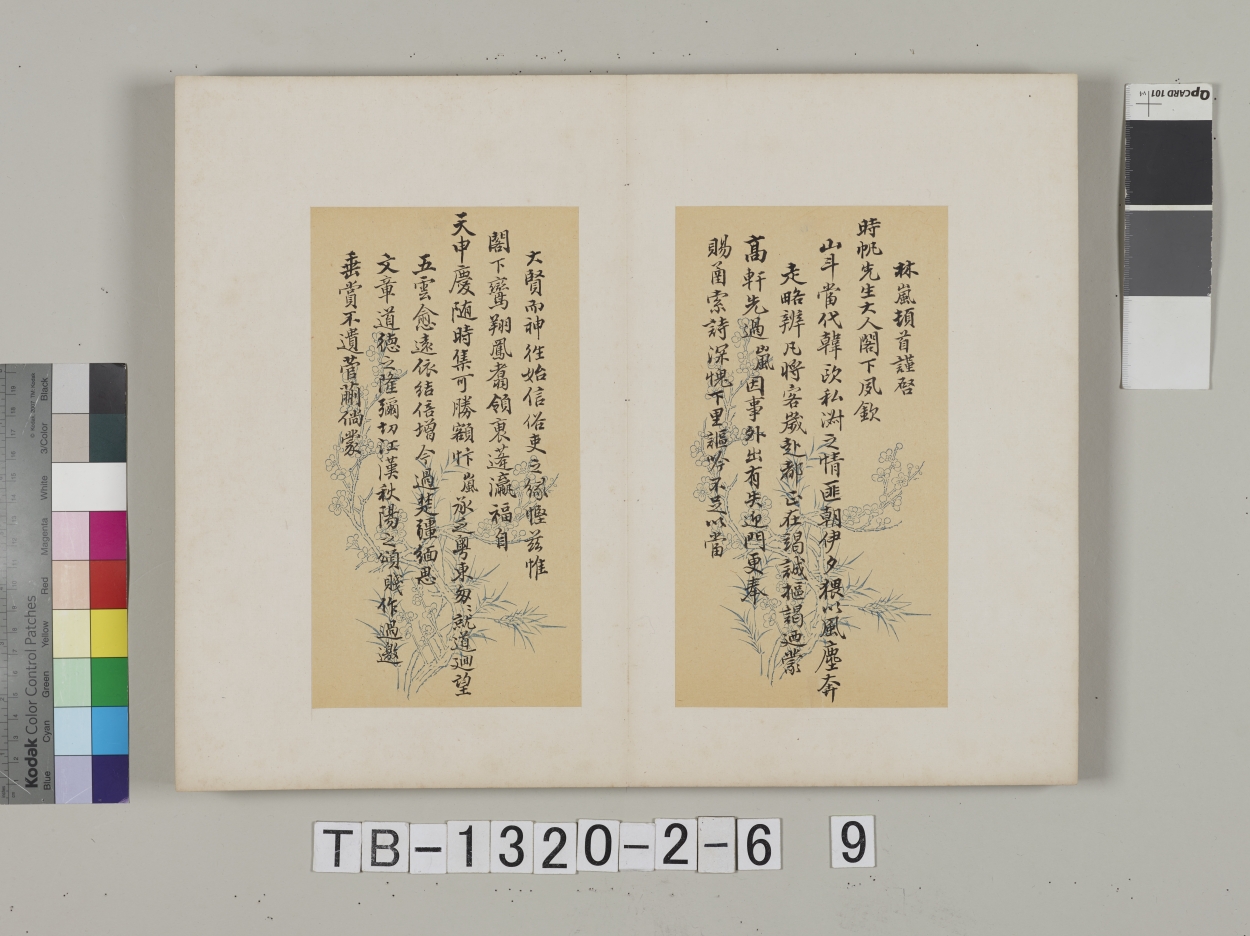 林嵐頓首謹啓
時帆先生大人閣下夙欽
山斗當代韓歐私淑之情匪朝伊夕猥以風塵奔
走略辨凡將客歲赴都正在竭誠樞謁廼蒙
高軒先過嵐因事外出有失迎門更奉
賜函索詩深愧下里謳吟不足以當
大賢而神往始信俗吏之緣慳茲惟
閣下鸞翔鳳翥領袠蓬瀛福自
天申慶随時集可勝額忭嵐承乏粤東匆匆就道廻望
五雲愈遠依結倍增今過楚疆緬思
文章道德之隆彌切江漢秋陽之頌賤作過邀
垂賞不遺菅蒯倘蒙
TB-1320-2-6 9
QPCARD 101 v1
Kodak Color Control Patches
Blue Cyan Green Yellow Red Magenta White 3/Color Black